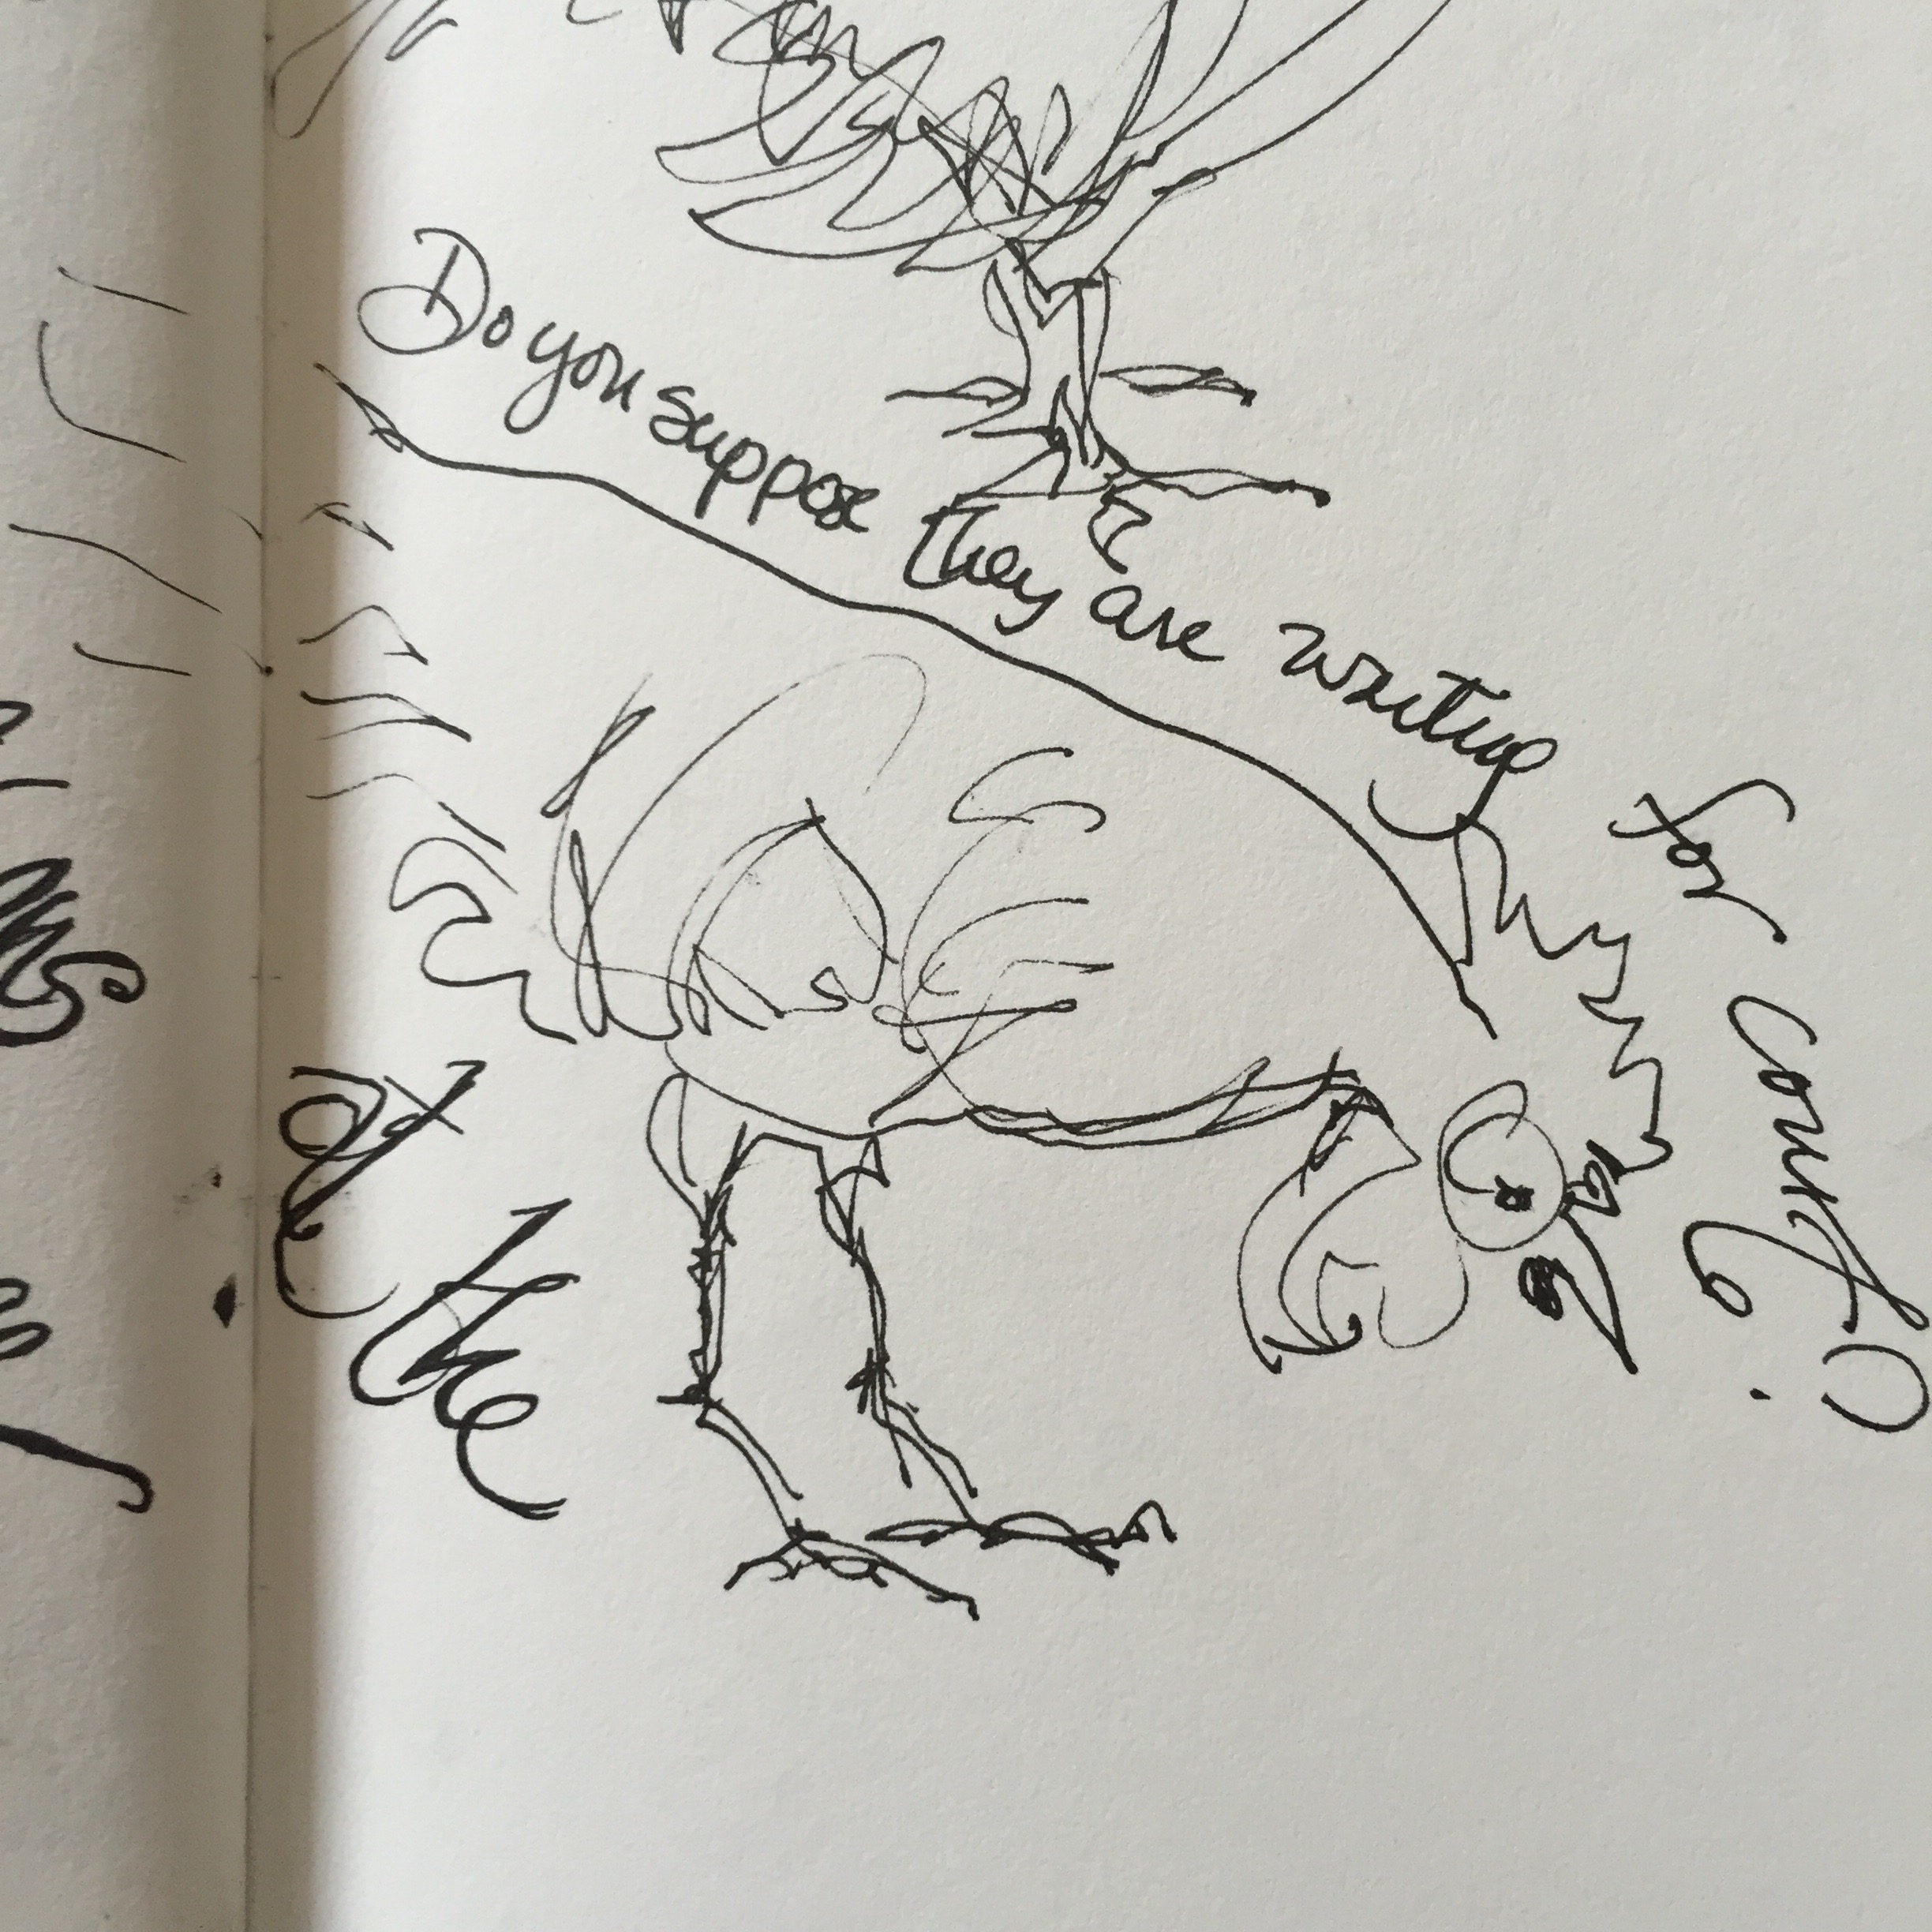 Do you suppose they are writing
for court?
at
the